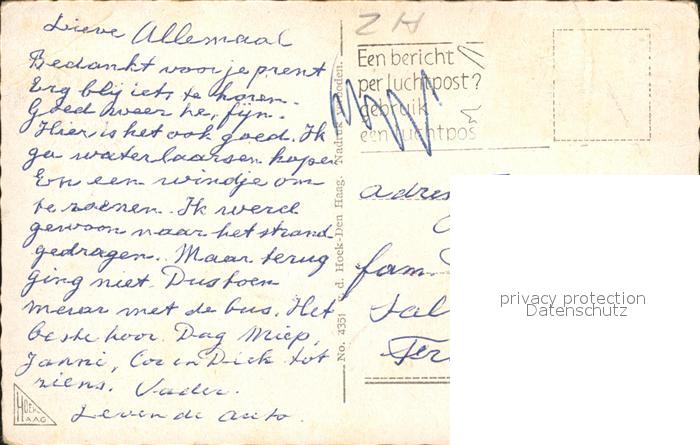 Lieve Allemaal
Bedankt voor je prent
Erg blij iets te horen.
Goed weer he, fijn.
Hier is het ook goed. Ik
ga waterlaarsen kopen
En een windje om
te zoenen. Ik werd
gewoon naar het strand
gedragen. Maar terug
ging niet. Dus toen
maar met de bus. Het
beste hoor. Dag Miep,
Janni, Cor en Dick tot
ziens. Vader.
Leven de auto.
HOEK
HAAG
No. 4351 v. d. Hoek-Den Haag. Nadruk verboden.
ZH
Een bericht
per luchtpost?
gebruik
een luchtpos
adres
fam.
privacy protection
Datenschutz